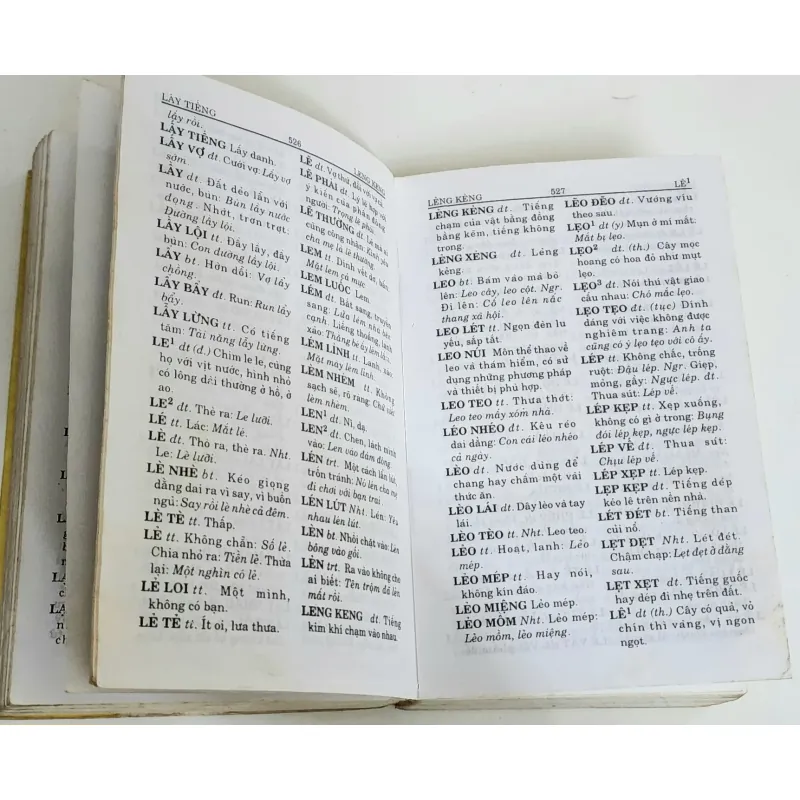 LẤY TIẾNG
526
LENG KENG
lấy rồi.
LẤY TIẾNG Lấy danh.
LẤY VỢ đt. Cưới vợ: Lấy vợ
sớm.
LẦY dt. Đất dẻo lẫn với
nước, bùn: Bùn lầy nước
đọng. Nhớt, trơn trợt:
Đường lầy lội.
LẦY LỘI tt. Đầy lầy, đầy
bùn: Con đường lầy lội.
LẪY bt. Hờn dỗi: Vợ lẫy
chồng.
LẨY BẨY đt. Run: Run lẩy
bẩy.
LẪY LỪNG tt. Có tiếng
tăm: Tài năng lẫy lừng.
LE¹ dt (đ.) Chim le le, cùng
họ với vịt nước, hình nhỏ
có lông dài thường ở hồ, ở
ao.
LE² đt. Thè ra: Le lưỡi.
LÉ tt. Lác: Mắt lé.
LÈ đt. Thò ra, thè ra. Nht.
Le: Lè lưỡi.
LÈ NHÈ bt. Kéo giọng
dằng dai ra vì say, vì buồn
ngủ: Say rồi lè nhè cả đêm.
LÈ TÈ tt. Thấp.
LẺ tt. Không chẵn: Số lẻ.
Chia nhỏ ra: Tiền lẻ. Thừa
lại: Một nghìn có lẻ.
LẺ LOI tt. Một mình,
không có bạn.
LẺ TẺ tt. Ít oi, lưa thưa.
LẼ dt. Vợ thứ, đối với vợ cả.
LẼ PHẢI dt. Lý lẽ hợp với
ý kiến của phần đông
người: Trọng lẽ phải.
LẼ THƯỜNG dt. Lẽ mà ai
cũng công nhận: Kính yêu
cha mẹ là lẽ thường.
LEM tt. Dính vết dơ, bẩn:
Mặt lem cả mực.
LEM LUỐC Lem.
LÉM đt. Bắt sang, truyền
sang: Lửa lém nhà bên
cạnh. Liếng thoắng, lanh
LÉM LỈNH tt. Lém:
Mặt mày lém lỉnh.
LÈM NHÈM tt. Không
sạch sẽ, rõ ràng: Chữ viết
lèm nhèm.
LEN¹ Nỉ, dạ.
LEN² đt. Chen, lách mình
vào: Len vào đám đông.
LÉN trt. Một cách lẩn lút,
trốn tránh: Nó lén cha mẹ
đi chơi với bạn trai
LÉN LÚT Nht. Lén: Yêu
nhau lén lút.
LÈN bt. Nhồi chặt vào: Lèn
bông vào gối.
LẺN trt. Ra vào không cho
ai biết: Tên trộm đã lẻn
mất rồi.
LENG KENG dt. Tiếng
kim khí chạm vào nhau.
LẺNG KẺNG
527
LÊ¹
LẺNG KẺNG dt. Tiếng
chạm của vật bằng đồng
bằng kẽm, tiếng không
trong.
LẺNG XẺNG dt. Lẻng
kẻng.
LEO bt. Bám vào mà bò
lên: Leo cây, leo cột. Ngr.
Đi lên: Cố leo lên nấc
thang xã hội.
LEO LÉT tt. Ngọn đèn lu
yếu, sắp tắt.
LEO NÚI Môn thể thao về
leo và thám hiểm, có sử
dụng những phương pháp
và thiết bị phù hợp.
LEO TEO tt. Thưa thớt:
Leo teo mấy xóm nhà.
LÉO NHÉO đt. Kêu réo
dai dẳng: Con cái léo nhéo
cả ngày.
LÈO dt. Nước dùng để
chang hay chấm một vài
thức ăn.
LÈO LÁI dt. Dây lèo và tay
lái.
LÈO TÈO tt. Nht. Leo teo.
LẺO tt. Hoạt, lanh: Lẻo
mép.
LẺO MÉP tt. Hay nói,
không kín đáo.
LẺO MIỆNG Lẻo mép.
LẺO MỒM Nht. Lẻo mép:
Lẻo mồm, lẻo miệng.
LẼO ĐẼO đt. Vướng víu
theo sau.
LẸO¹ dt (y) Mụn ở mí mắt:
Mắt bị lẹo.
LẸO² dt. (th.) Cây mọc
hoang có hoa đỏ như mụt
lẹo.
LẸO³ đt. Nói thú vật giao
cấu nhau: Chó mắc lẹo.
LẸO TẸO đt. (tục) Dính
dáng với việc không được
nghiêm trang: Anh ta
cũng có ý lẹo tẹo với cô ấy.
LÉP tt. Không chắc, trống
ruột: Đậu lép. Ngr. Giẹp,
mỏng, gầy: Ngực lép. đt.
Thua sút: Lép vế.
LÉP KẸP tt. Xẹp xuống,
không có gì ở trong: Bụng
đói lép kẹp, ngực lép kẹp.
LÉP VẾ đt. Thua sút:
Chịu lép vế.
LÉP XẸP tt. Lép kẹp.
LẸP KẸP dt. Tiếng dép
kéo lê trên nền nhà.
LÉT ĐÉT bt. Tiếng than
củi nổ.
LẸT DẸT Nht. Lét đét.
Chậm chạp: Lẹt đẹt ở đằng
sau.
LẸT XẸT dt. Tiếng guốc
hay dép đi nhẹ trên đất.
LÊ¹ dt (th.) Cây có quả, vỏ
chín thì vàng, vị ngon
ngọt.